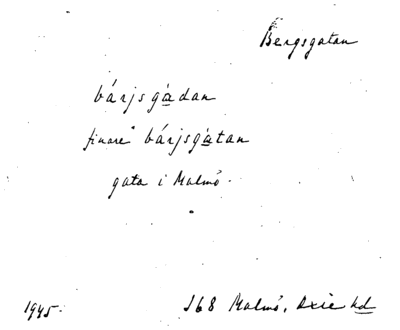 Bergsgatan
bárjsgàdan
finare bárjsgàtan
gata i Malmö.
1945.
J68 Malmö, Oxie hd